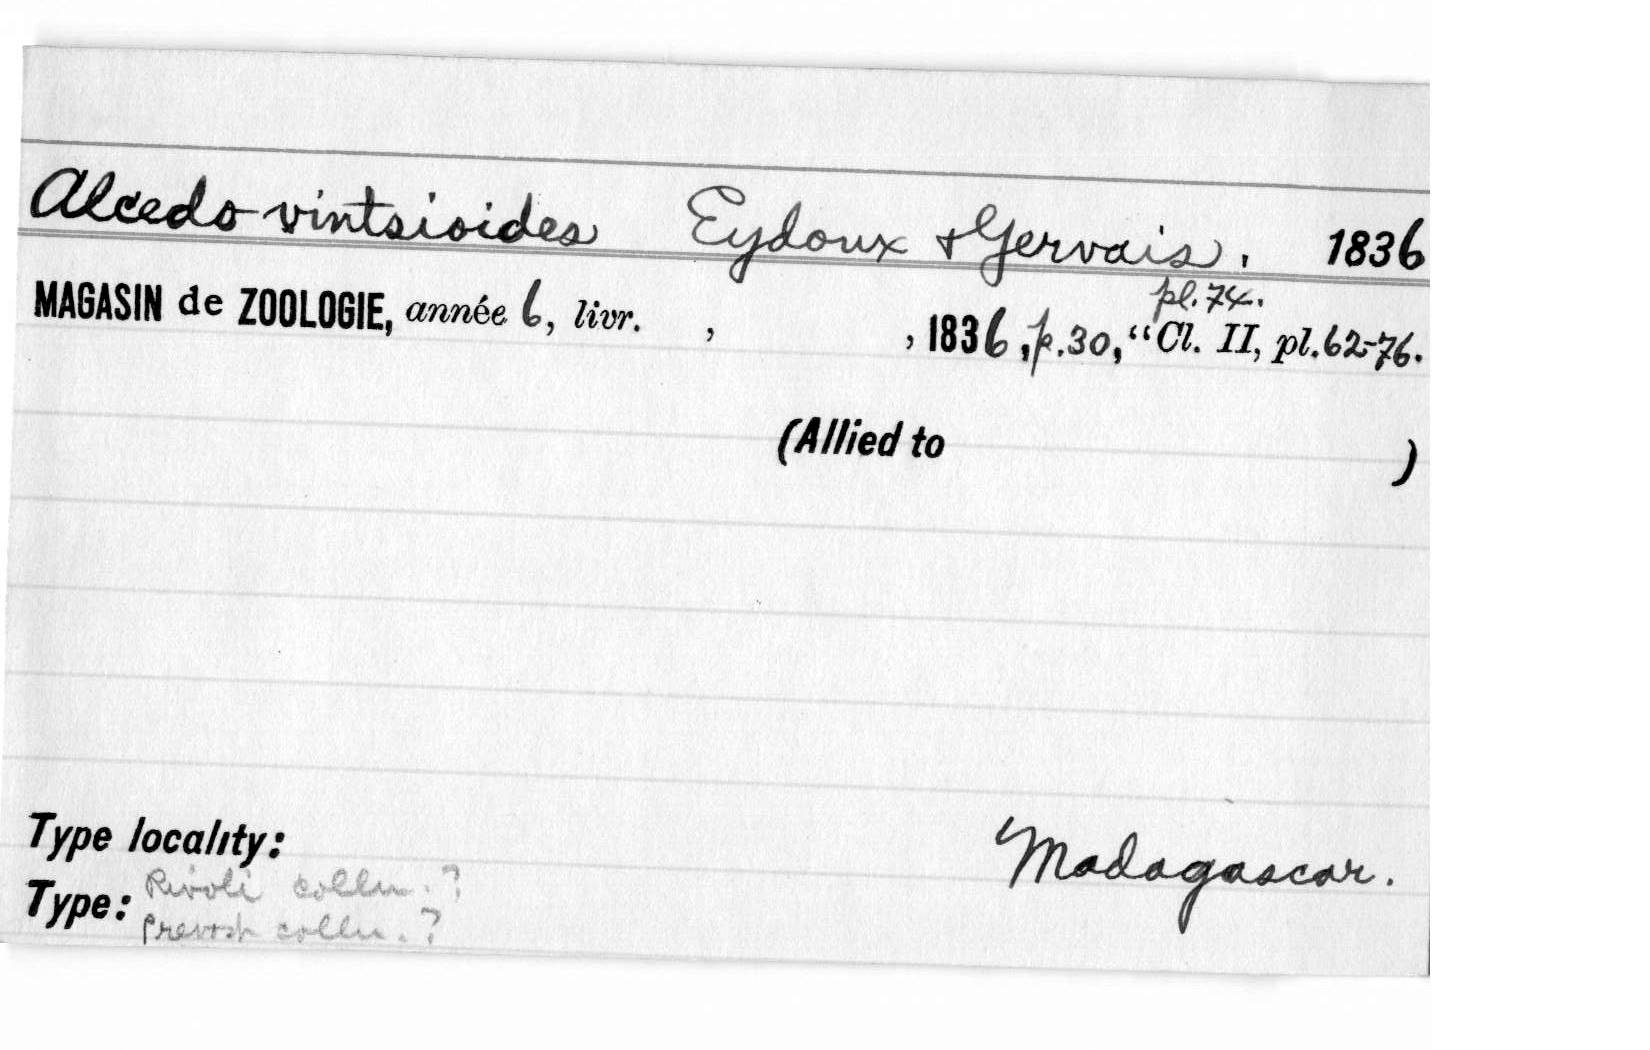 Alcedo vintsioides Eydoux & Gervais, 1836
pl. 74.
MAGASIN de ZOOLOGIE, année 6, livr. , , 1836, p. 30, “Cl. II, pl. 62-76.
(Allied to )
Type locality: Madagascar.
Rivoli colln. ?
Type: Prevost colln. ?